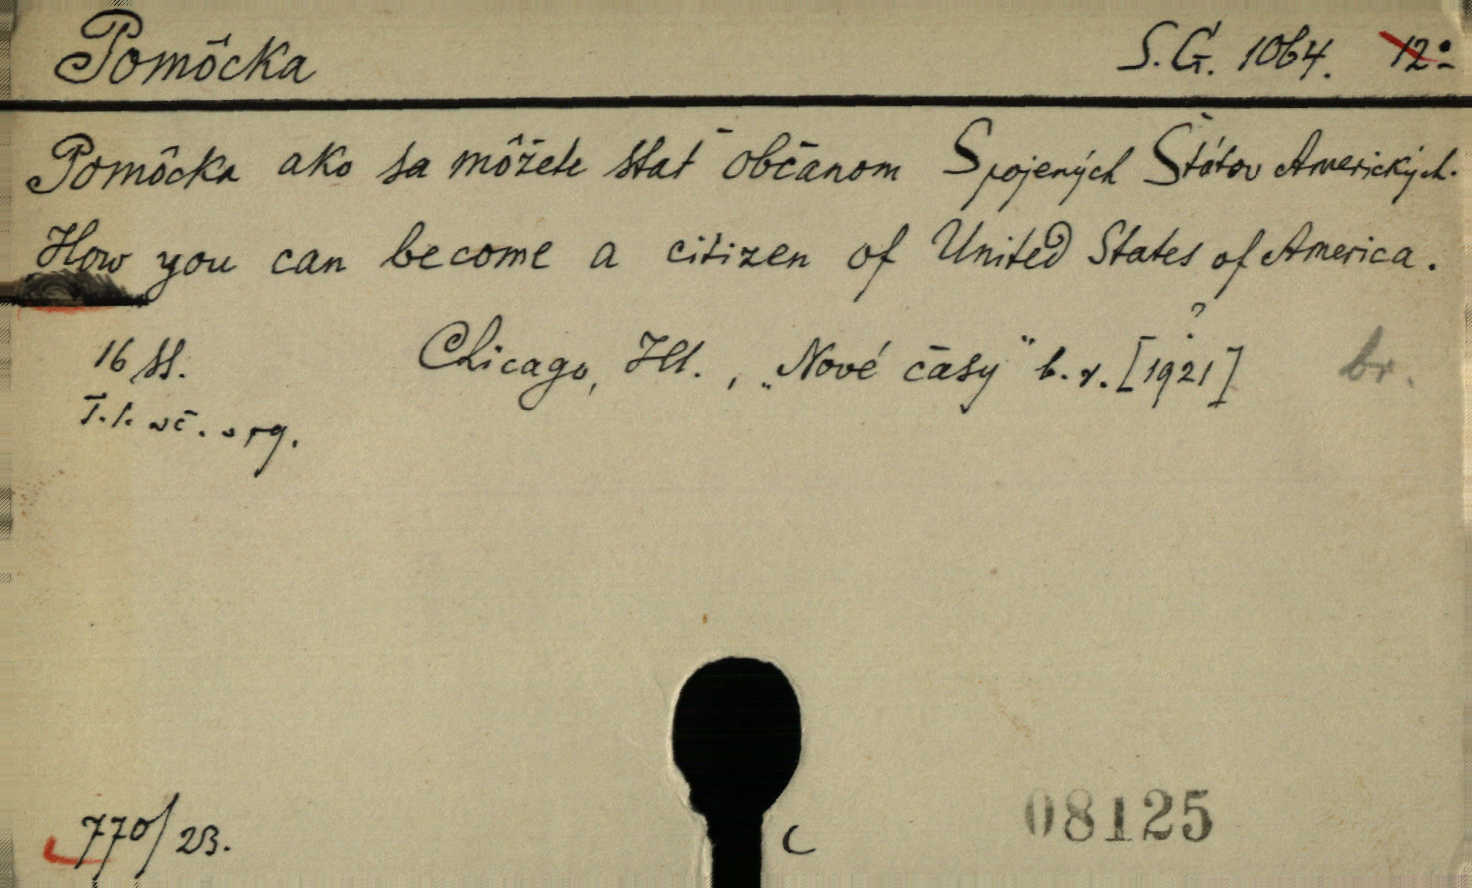 Pomôcka S.G. 1064. 12°
Pomôcka ako sa môžete stať občanom Spojených Štátov Amerických.
How you can become a citizen of United States of America.
16 ss. Chicago, Ill., „Nové časy" b. r. [1921] ? br.
770/23. C 08125